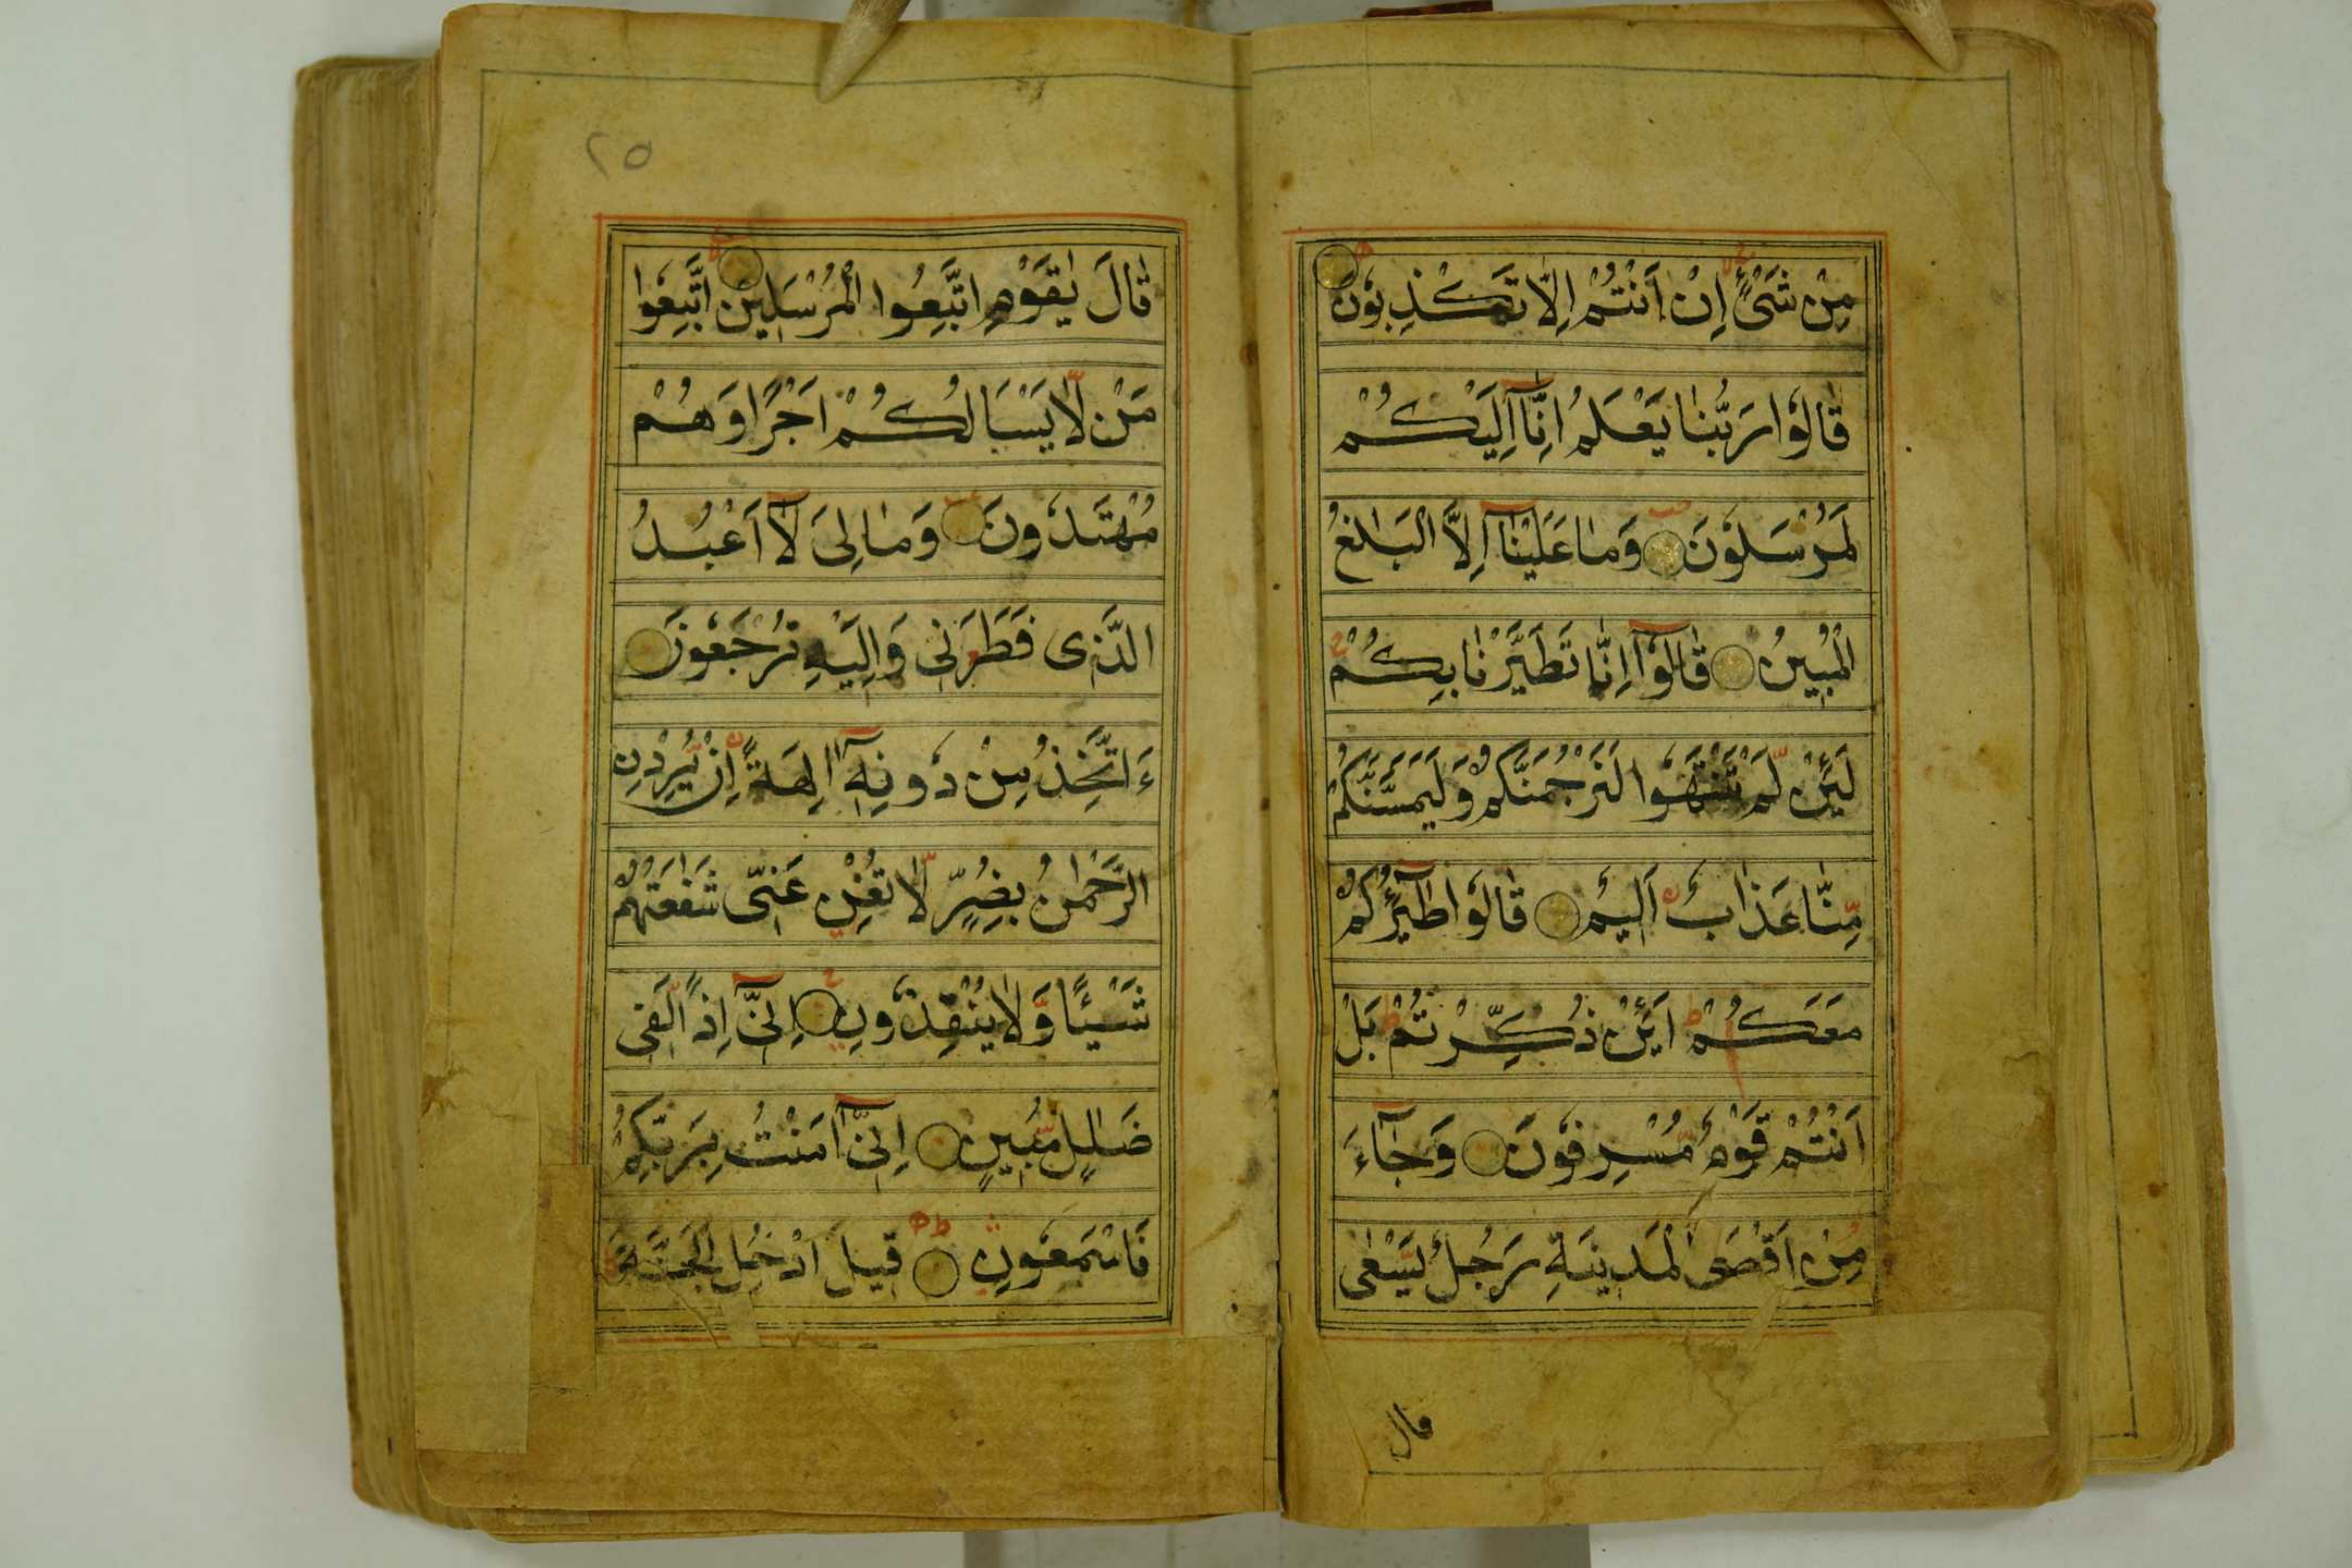 مِنْ شَیْءٍ اِنْ اَنْتُمْ اِلَّا تَكْذِبُوْنَ
قَالُوْا رَبُّنَا يَعْلَمُ اِنَّآ اِلَيْكُمْ
لَمُرْسَلُوْنَ وَمَا عَلَيْنَآ اِلَّا الْبَلٰغُ
الْمُبِيْنُ قَالُوْٓا اِنَّا تَطَيَّرْنَا بِكُمْ
لَئِنْ لَّمْ تَنْتَهُوْا لَنَرْجُمَنَّكُمْ وَلَيَمَسَّنَّكُمْ
مِّنَّا عَذَابٌ اَلِيْمٌ قَالُوْا طَآئِرُكُمْ
مَعَكُمْ اَئِنْ ذُكِّرْتُمْ بَلْ
اَنْتُمْ قَوْمٌ مُّسْرِفُوْنَ وَجَآءَ
مِنْ اَقْصَی الْمَدِيْنَةِ رَجُلٌ يَّسْعٰی
قال
٢٥
قَالَ يٰقَوْمِ اتَّبِعُوا الْمُرْسَلِيْنَ اتَّبِعُوْا
مَنْ لَّا يَسْـَٔالُكُمْ اَجْرًا وَهُمْ
مُهْتَدُوْنَ وَمَا لِیَ لَآ اَعْبُدُ
الَّذِی فَطَرَنِی وَاِلَيْهِ تُرْجَعُوْنَ
ءَاَتَّخِذُ مِنْ دُوْنِهٖٓ اٰلِهَةً اِنْ يُّرِدْنِ
الرَّحْمٰنُ بِضُرٍّ لَّا تُغْنِ عَنِّی شَفَاعَتُهُمْ
شَيْئًا وَّلَا يُنْقِذُوْنِ اِنِّیٓ اِذًا لَّفِی
ضَلٰلٍ مُّبِيْنٍ اِنِّیٓ اٰمَنْتُ بِرَبِّكُمْ
فَاسْمَعُوْنِ قِيْلَ ادْخُلِ الْجَنَّةَ